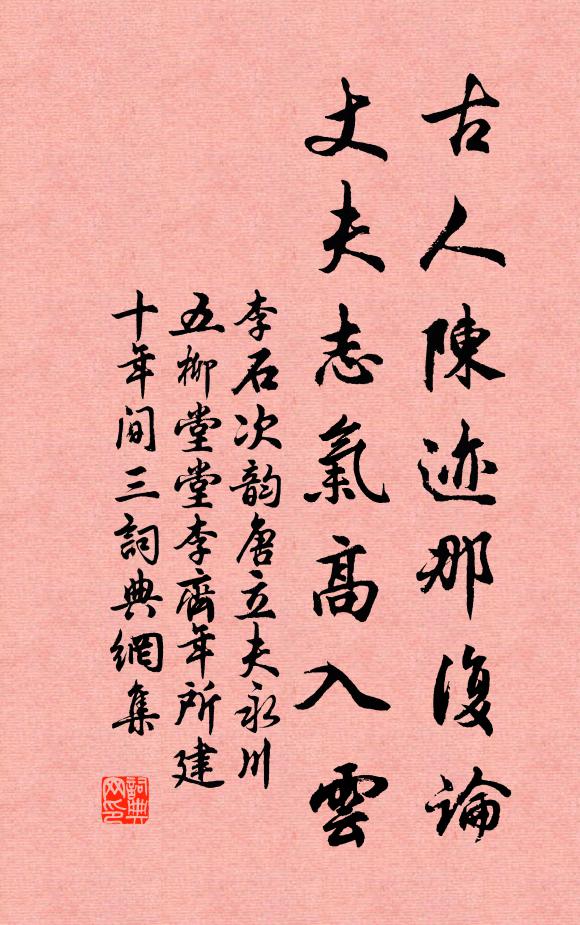 古人陳迹那復論
丈夫志氣高入雲
李石次韵唐立夫永川
五柳堂堂李齊年所建
十年間三詞典網集
詞典網印